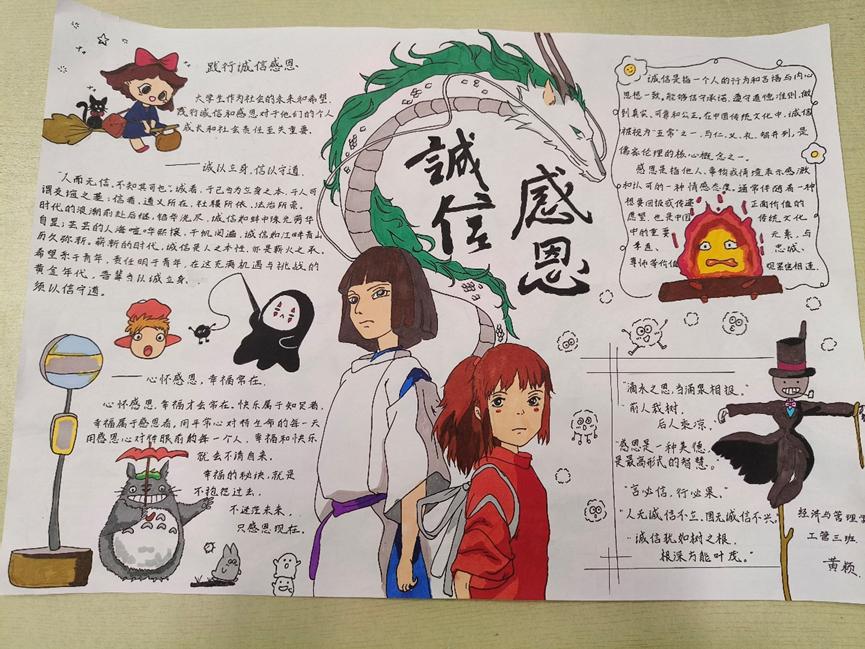 践行诚信感恩
大学生作为社会的未来和希望,
践行诚信和感恩对于他们的个人
成长和社会责任至关重要.
——诚以立身,信以守道.
"人而无信,不知其可也".诚者,于己当为立身之本,于人可
谓交谊之垂;信者,道义所在,社稷所需,法治所需,
时代的浪潮前赴后继,铅华洗尽,诚信如蚌中珠光芳华
自显;芸芸的人海喧哗熙攘,千帆阅遍,诚信如江畔青山
历久弥新.崭新的时代,诚信是人之本性,亦是薪火之承.
希望系于青年,责任明于青年,在这充满机遇与挑战的
黄金年代,吾辈当以诚立身,
须以信守道.
——心怀感恩,幸福常在.
心怀感恩,幸福才会常在.快乐属于知足者,
幸福属于感恩者,用平常心对待生命的每一天
用感恩心对待眼前的每一个人,幸福和快乐
就会不请自来.
幸福的秘诀,就是
不抱怨过去,
不迷茫未来,
只感恩现在.
誠信
感恩
诚信是指一个人的行为和言语与内心
思想一致,能够信守承诺、遵守道德准则,做
到真实、可靠和公正.在中国传统文化中,诚信
被视为"五常"之一,与仁、义、礼、智并列,是
儒家伦理的核心概念之一.
感恩是指他人、事物或情境表示感激
和认可的一种情感态度.通常伴随着一种
想要回报或传递 正面价值的
愿望,也是中国 传统文化
中的重要 元素,与
孝道、 忠诚、
尊师等价值 观紧密相连.
"滴水之恩,当涌泉相报."
前人栽树,
后人乘凉.
"感恩是一种美德,
是最高形式的智慧."
"言必信,行必果."
"人无诚信不立,国无诚信不兴."
"诚信犹如树之根,
根深方能叶茂."
经济与管理学
工管三班.
黄颖.